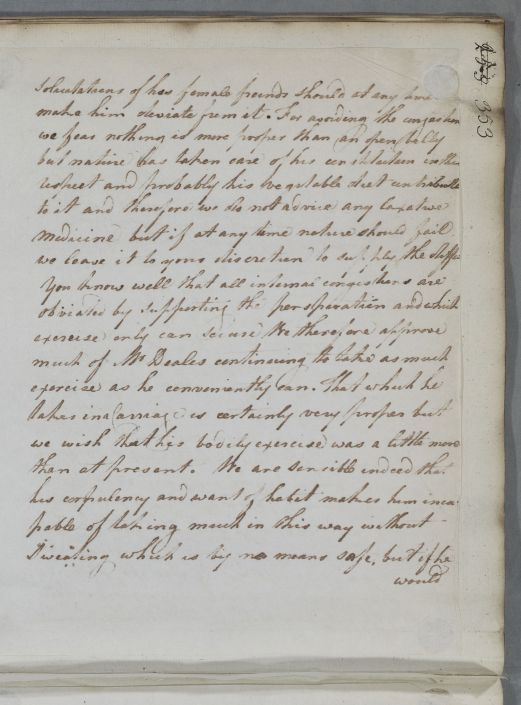 353
Solicitations of his female friends should at any time
make him deviate from it. For avoiding the congestion
we fear nothing is more proper than an open belly
but nature has taken care of his constitution in this
respect and probably his vegetable diet contributes
to it and therefore we do not advice any laxative
medicine but if at any time nature should fail
we leave it to your discretion to supply the
You know well that all internal congestions are
obviated by supporting the perspiration and which
exercise only can secure We therefore approve
much of Mr Deales continuing to take as much
exercise as he conveniently can. That which he
takes in a carriage is certainly very proper but
we wish that his bodily exercise was a little more
than at present. We are sensible indeed that
his corpulency and want of habit makes him inca
pable of taking much in this way without
Sweating which is by no means safe, but if he
would